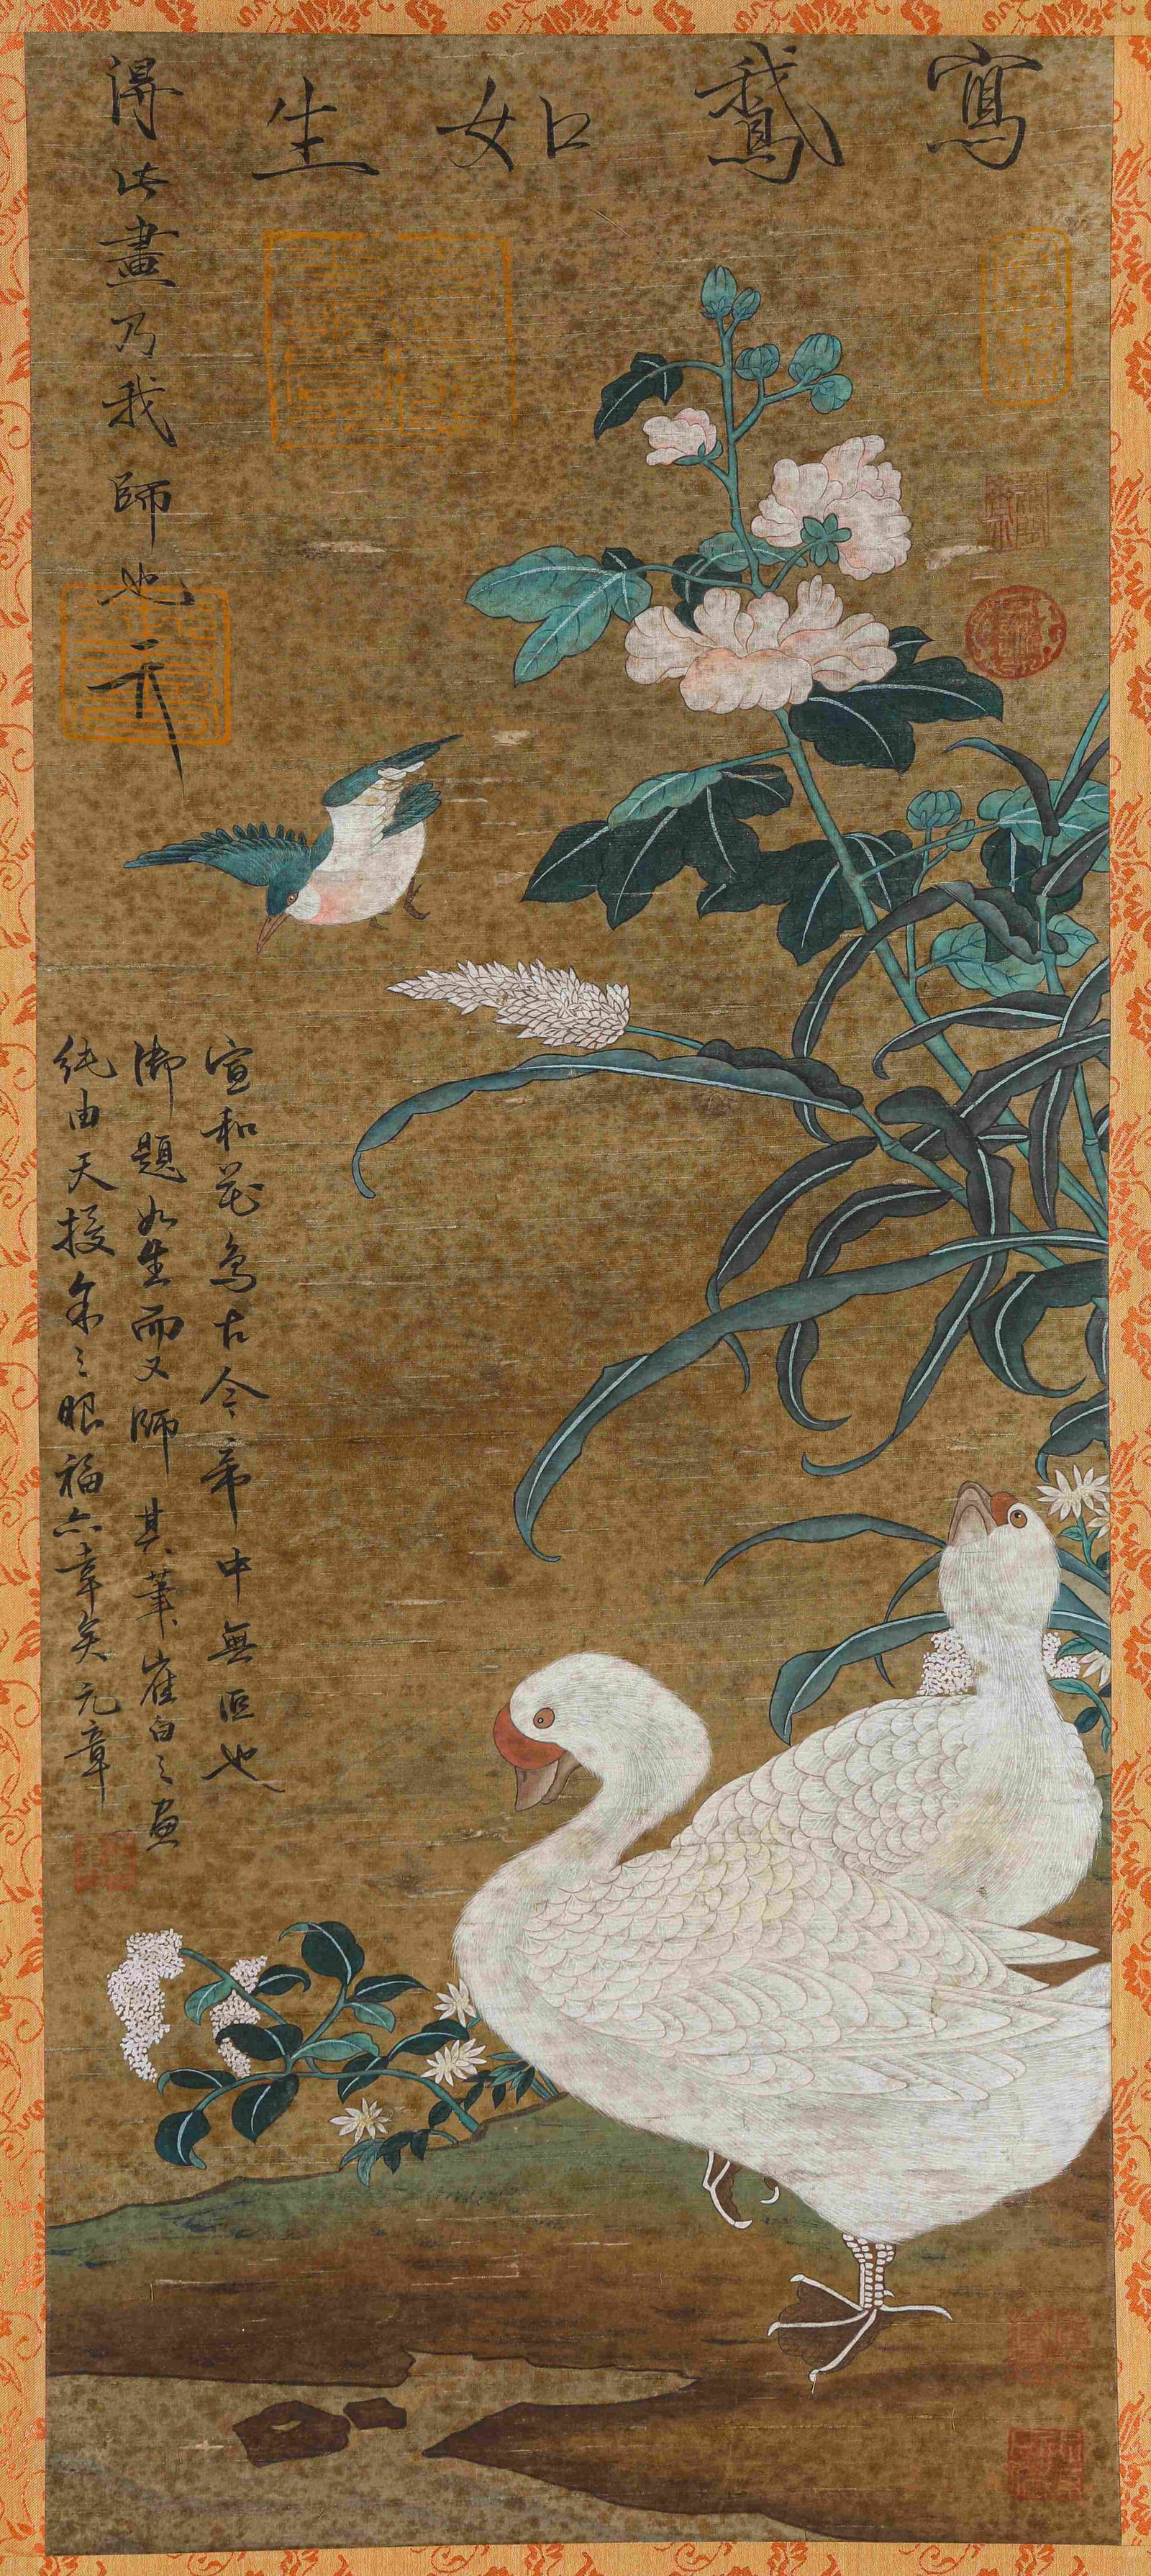 寫鵝如生
得此畫乃我師也
宣和花鳥古今帝中無匹也
御題如生而又師其筆崔白之畫
純由天授余之眼福亦幸矣元章